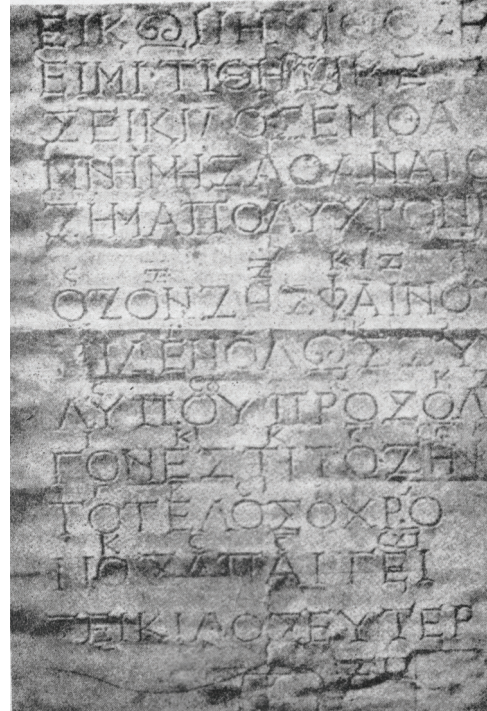 ΕΙΚΩΝΗΛΙΘΟΣ
ΕΙΜΙ·ΤΙΘΗΣΙΜΕ
ΣΕΙΚΙΛΟΣΕΝΘΑ
ΜΝΗΜΗΣΑΘΑΝΑΤΟ
ΣΗΜΑΠΟΛΥΧΡΟΝΙ
C Z ΚΙΖ Ι
ΟΣΟΝΖΗΣΦΑΙΝΟ
ΜΗΔΕΝΟΛΩΣΣΥ
ΛΥΠΟΥΠΡΟΣΟΛ
ΓΟΝΕΣΤΙΤΟΖΗΝ
ΤΟΤΕΛΟΣΟΧΡΟ
ΝΟΣΑΠΑΙΤΕΙ
ΣΕΙΚΙΛΟΣΕΥΤΕΡ
ΖΗ